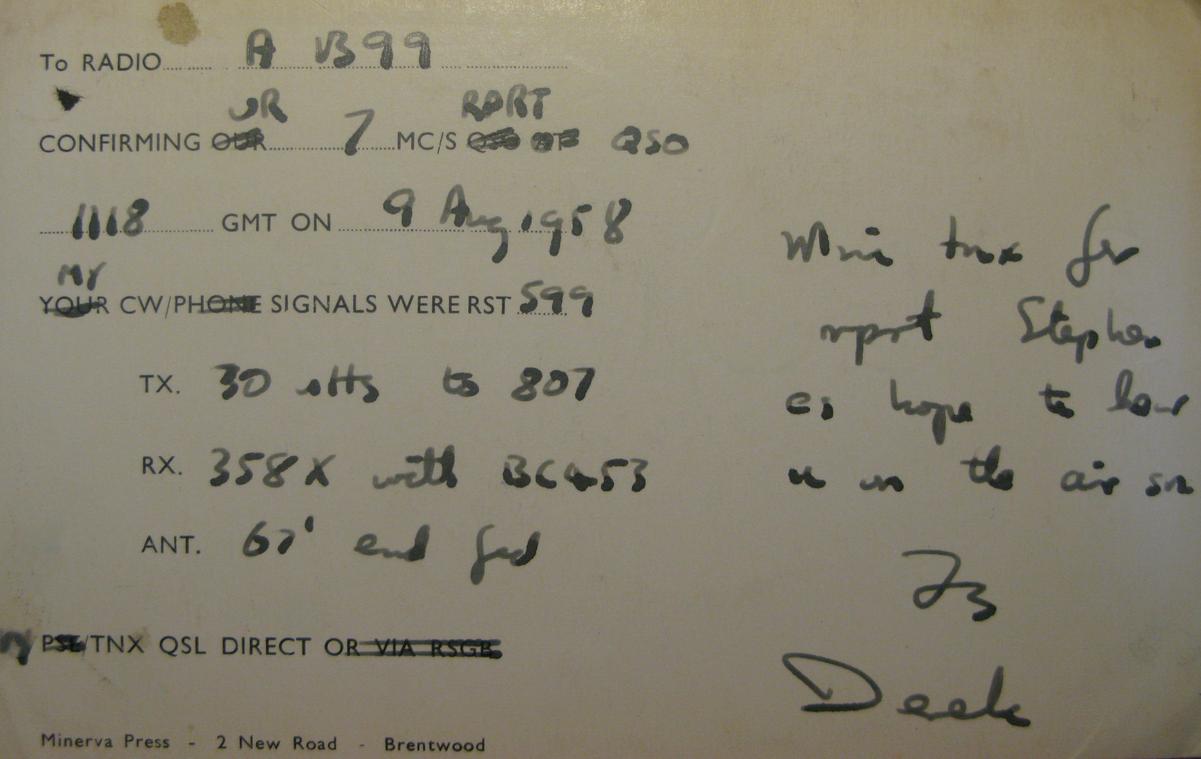 To RADIO A 1399
UR RPRT
CONFIRMING OUR 7 MC/S QSO OF QSO
1118 GMT ON 9 Aug. 1958
MY
YOUR CW/PHONE SIGNALS WERE RST 599
TX. 30 to 807
RX. 358X with BC453
ANT. 67' end fed
PSE/TNX QSL DIRECT OR VIA RSGB
Minerva Press - 2 New Road - Brentwood
tnx for
rprt Stephen
es hope to hear
u on the air sn
73